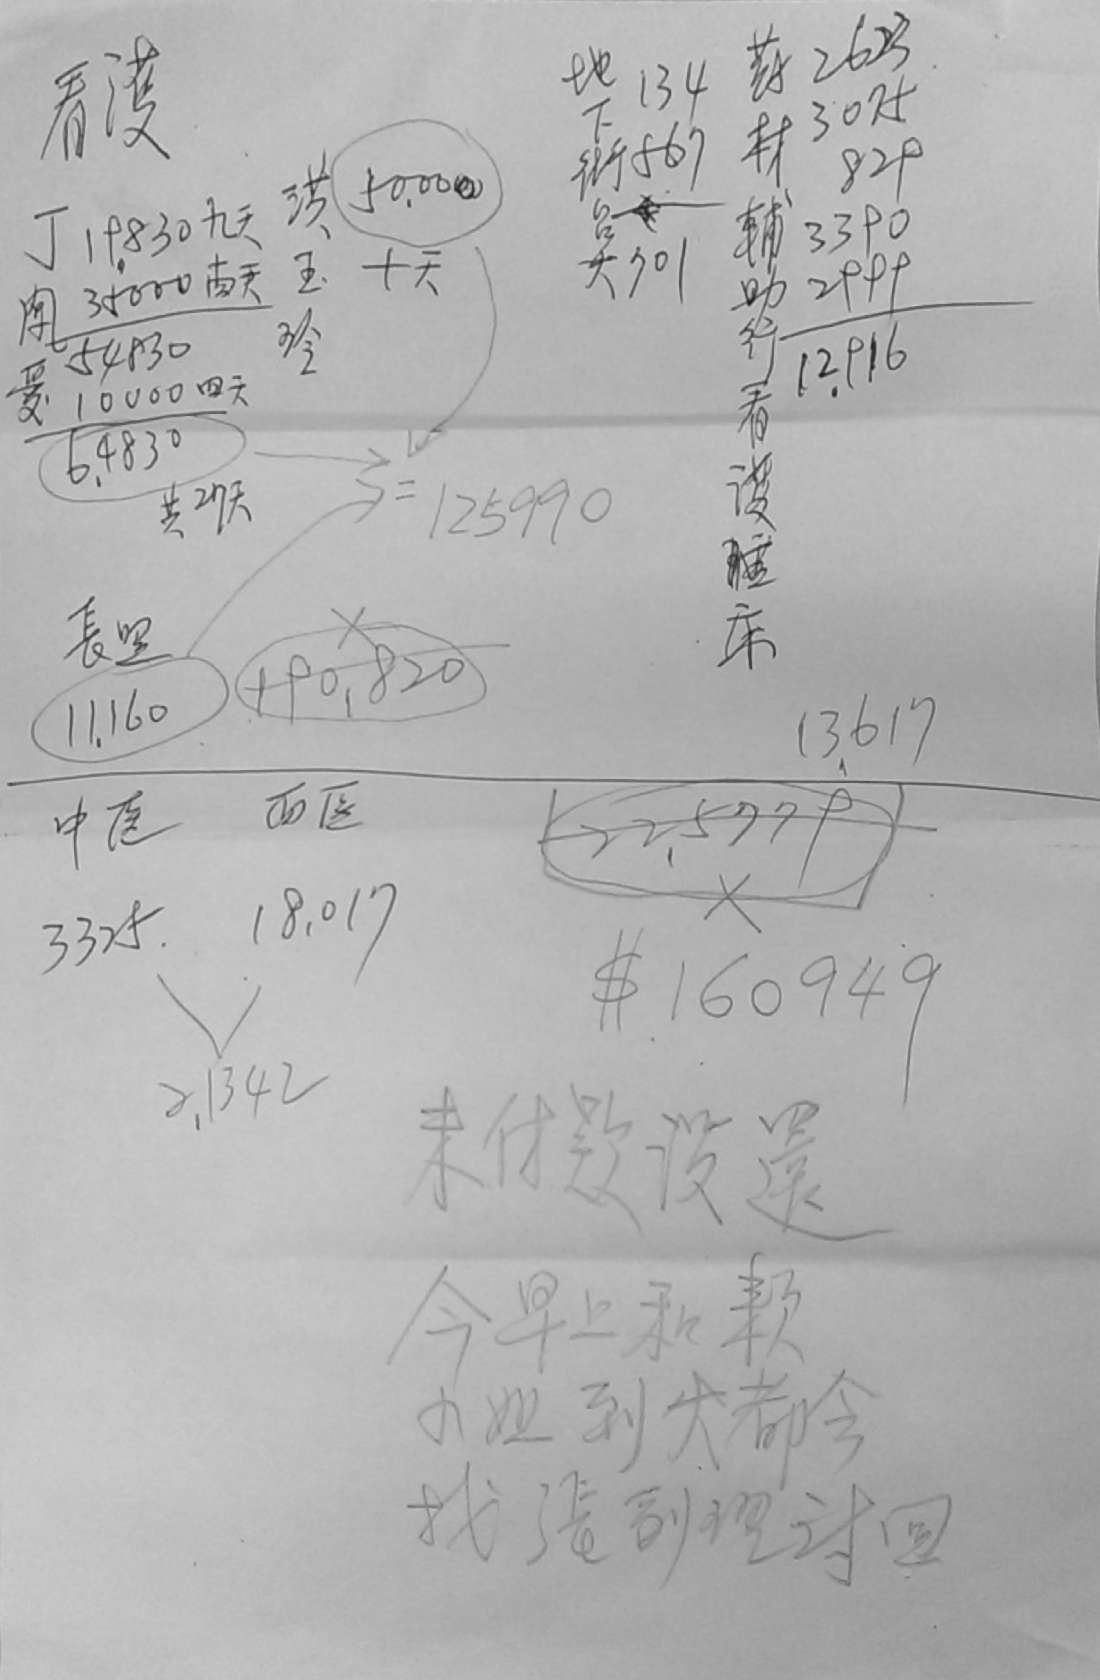 看護
丁 19,830 九天
35000 南天
54830
10000 四天
6,4830
共27天
洪玉玲
50,000
十天
地下街台大
134
567
701
藥材輔助行看護睡床
2623
3075
829
3390
2999
12,916
=125990
長照
11,160
190,820
13,617
中医 西医
22,5779
3325. 18,017
2,1342
$160949
未付款沒還
今早上和賴
小姐到大都會
找張副理討回